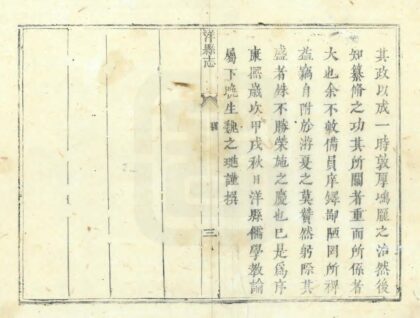 其政以成一時敦厚鴻龐之治然後
知纂脩之功其所關者重而所係者
大也余不敏備員庠鐸鄙陋罔所裨
益竊自附於游夏之莫贊然躬際其
盛者殊不勝榮施之慶也已是爲序
康熙歲次甲戌秋日洋縣儒學教諭
屬下晚生魏之璡謹撰
洋縣志
三